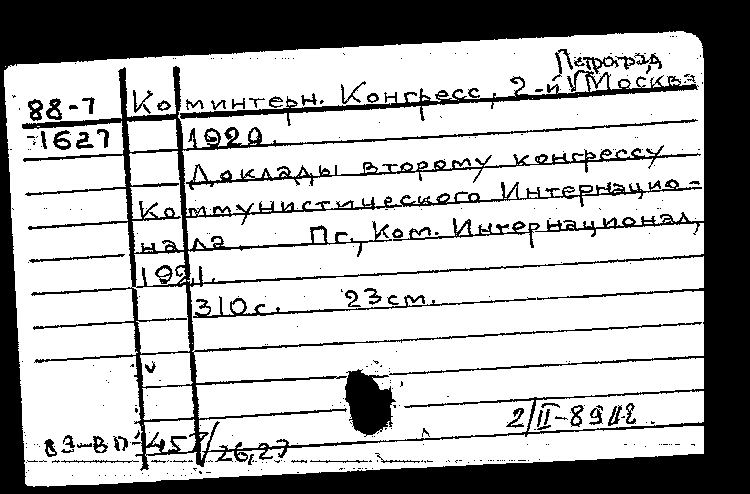 Петроград
88-7 Коминтерн. Конгресс, 2-й Москва
1627 1920.
Доклады второму конгрессу
Коммунистического Интернацио-
нала. Пг., Ком. Интернационал,
1921.
310с. 23см.
2/II-89
89-ВП-457/26,27